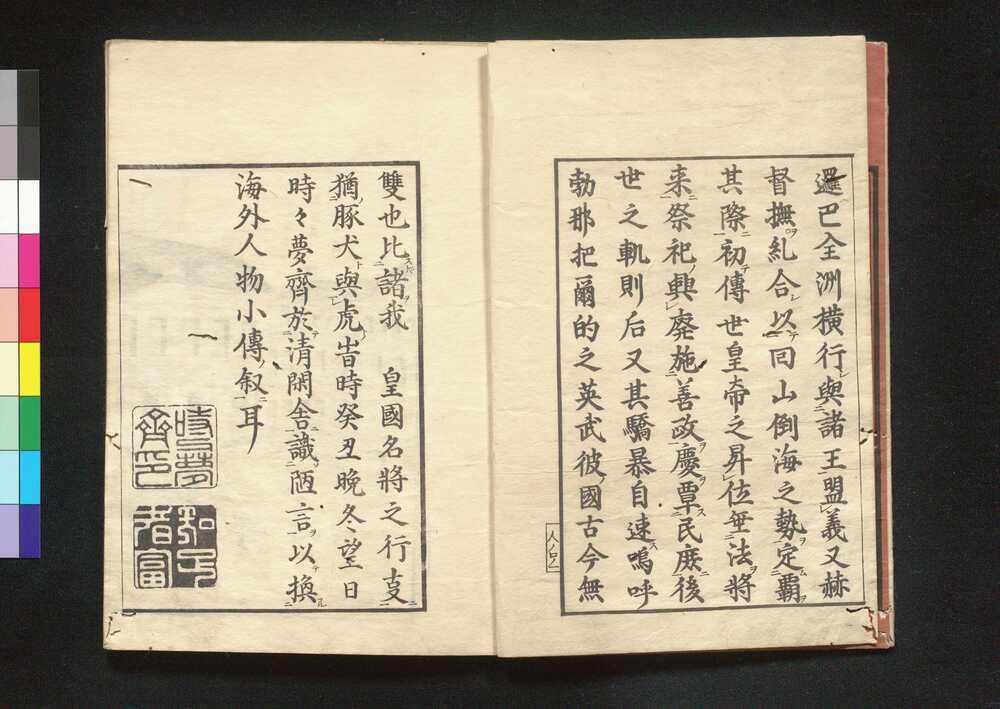 邏巴全洲横行與諸王盟義又赫
督撫糺合以回山倒海之勢定覇
其際初傳世皇帝之昇位無法將
来祭祀興廃施善政慶覃民庶後
世之軌則后又其驕暴自速嗚呼
勃那把爾的之英武彼國古今無
雙也比諸我 皇國名將之行支
猶豚犬與虎旹時癸丑晩冬望日
時々夢齊於清閑舎識陋言以換
海外人物小傳叙耳
時時夢齊
知足者富